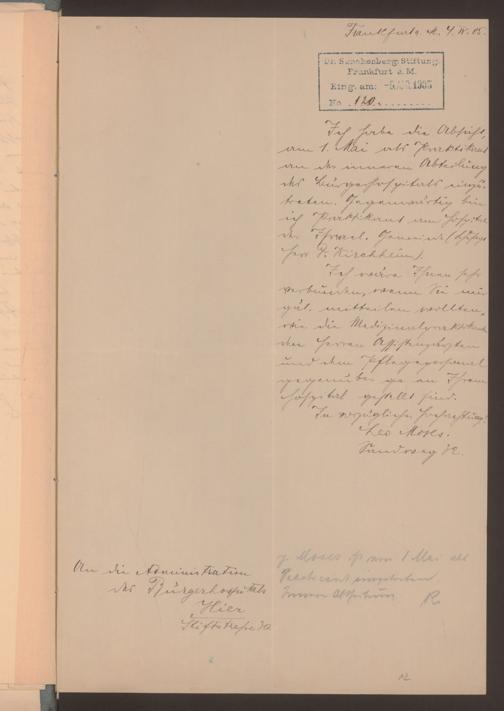 Frankfurt a. M. 4. IV. 05.
Dr. Senckenberg. Stiftung.
Frankfurt a. M.
Eing. am: 1905
No. 120.
Ich habe die Absicht,
am 1. Mai als Praktikant
an der inneren Abteilung
des Bürgerhospitals einzu-
treten. Gegenwärtig bin
ich Praktikant am Hospital
der Israel. Gemeinde
Herr Dr. Kirchheim).
Ich wäre Ihnen sehr
verbunden, wenn Sie mir
güt. mitteilen wollten,
wie die Medizinalpraktikanten
den Herren Assistenzärzten
und dem Pflegepersonal
gegenüber an Ihrem
Hospital gestellt sind.
In vorzüglicher Hochachtung:
Leo Moses.
Sandweg
An die Administration
des Bürgerhospitals
Hier
Stiftstraße
Moses ist am 1 Mai als
Practicant eingetreten
Innere Abtheilung